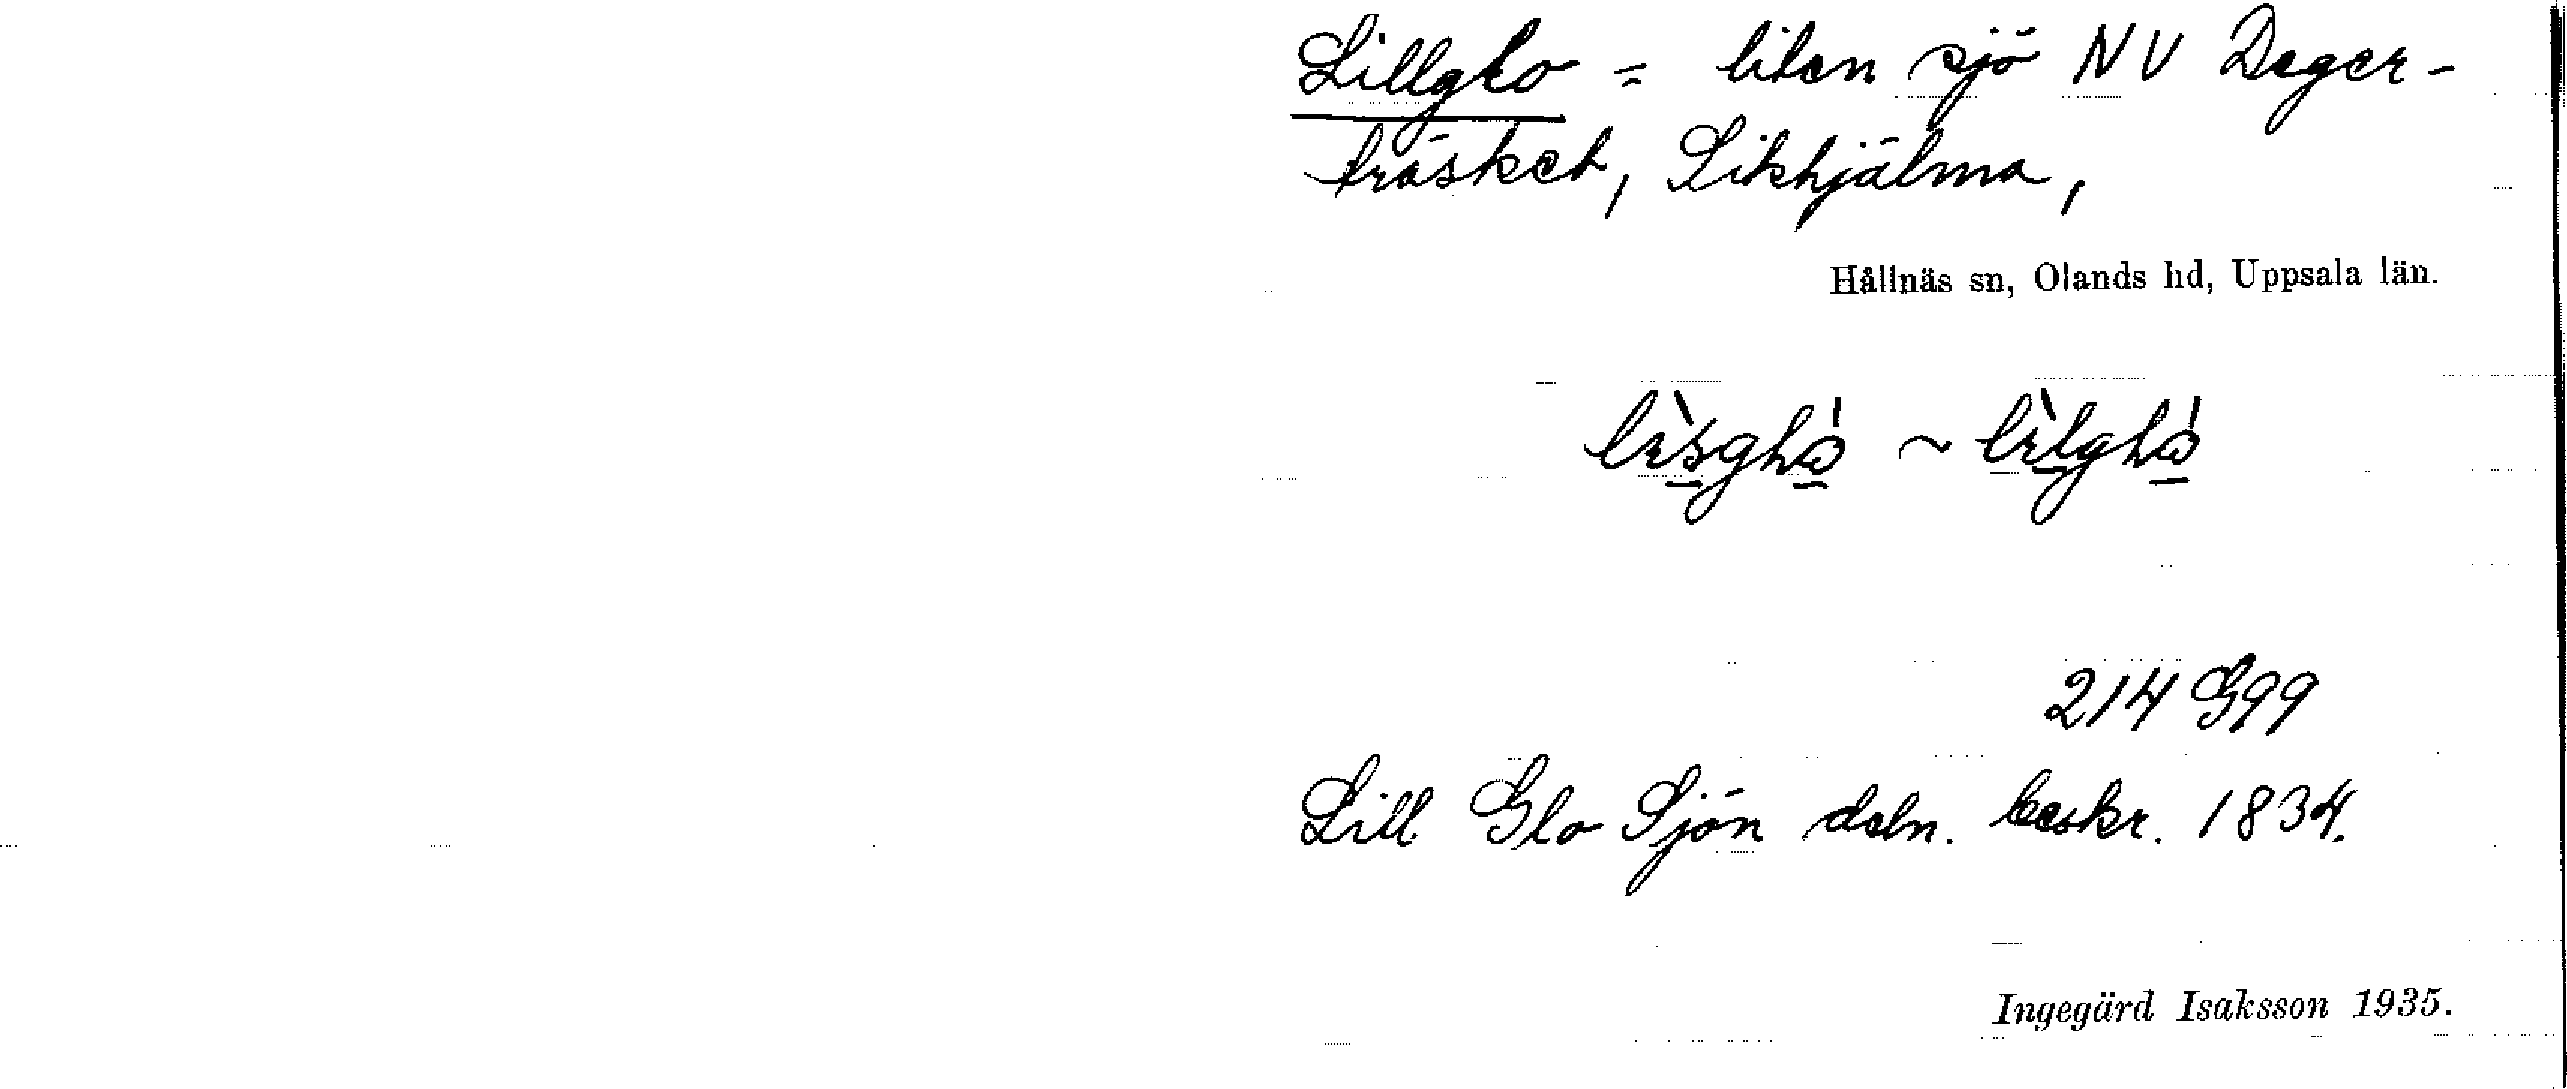 Lillglo = liten sjö NV Deger-
träsket, Sikhjälma,
Hållnäs sn, Olands hd, Uppsala län.
214 G99
Lill Glo Sjön deln. beskr. 1834.
Ingegärd Isaksson 1935.